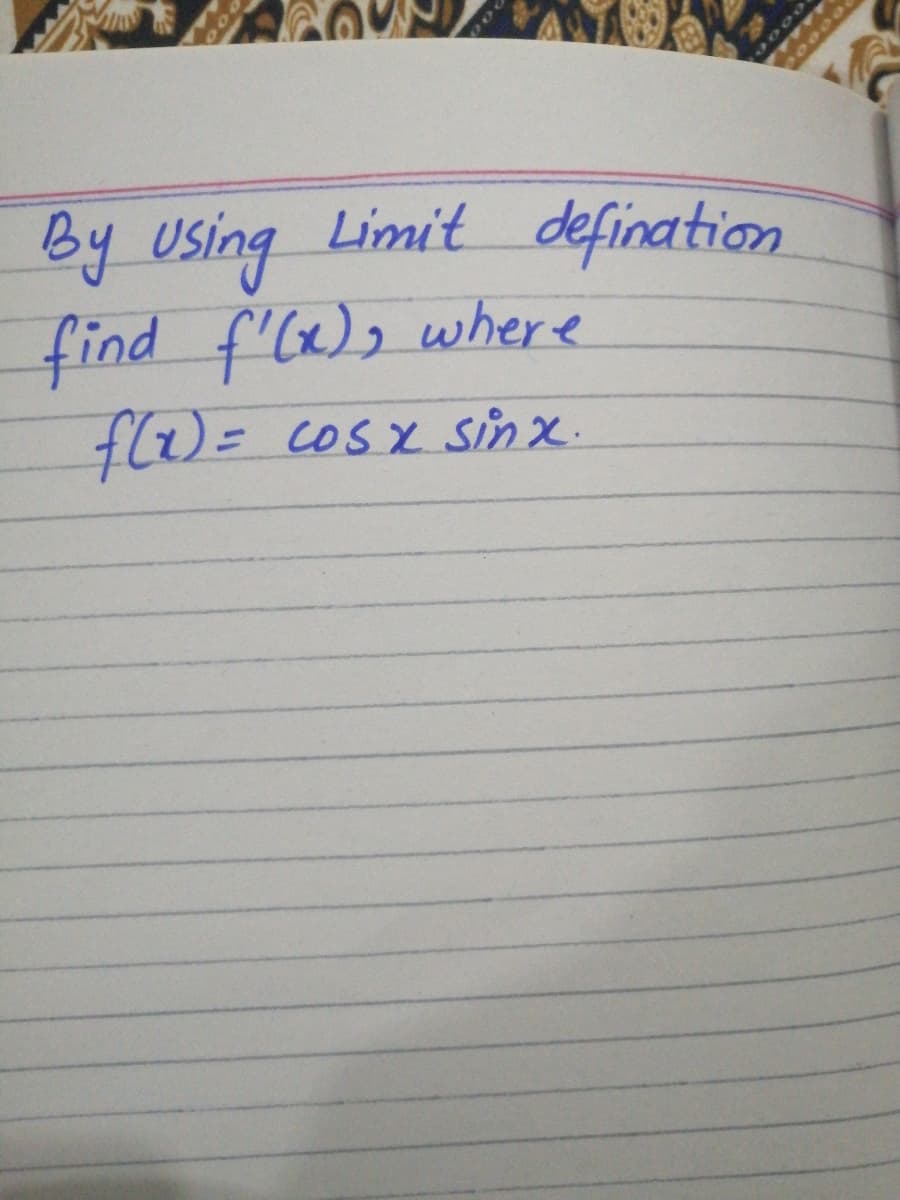 By Using Limit defination
find f'(x), where
f(x) = cosx sinx.